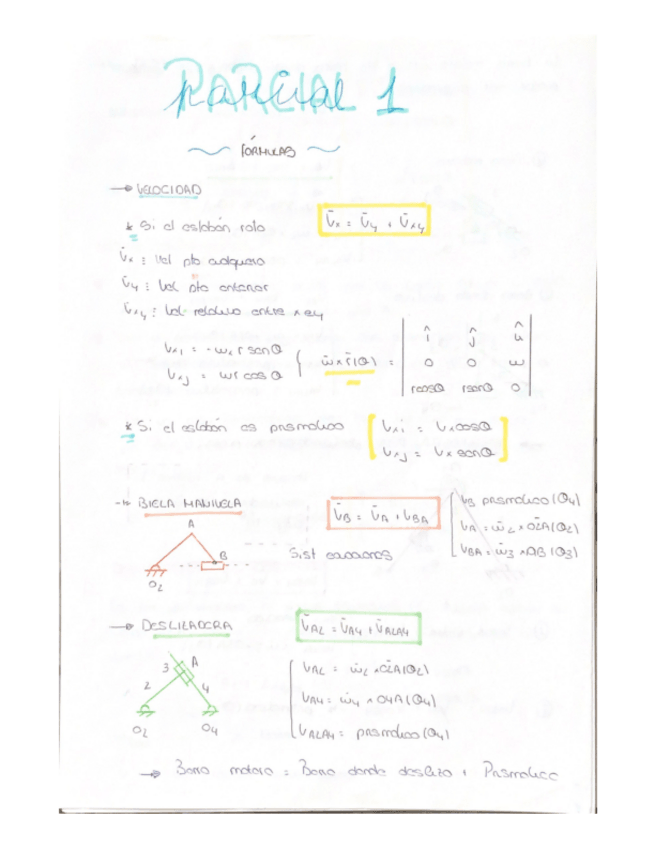 PARCIAL 1
FÓRMULAS
→ VELOCIDAD
* Si el eslabón rota
V̄x = V̄y + V̄xy
V̄x : Vel pto cualquiera
V̄y : Vel pto anterior
V̄xy : Vel relativa entre x e y
Vxi = -wx r senθ
Vxj = wr cosθ
w̄ x r̄(θ) =
î ĵ k̂
0 0 w
rcosθ rsenθ 0
* Si el eslabón es prismático
Vxi = Vxcosθ
Vxj = Vx senθ
→ BIELA MANIVELA
V̄B = V̄A + VBA
VB prismático (θ4)
VA = w̄2 x O2A(θ2)
VBA = w̄3 x AB (θ3)
A
B
O2
Sist ecuaciones
→ DESLIZADERA
V̄A2 = V̄A4 + V̄A2A4
VA2 = w̄2 x O2A(θ2)
VA4 = w̄4 x O4A(θ4)
VA2A4 = prismático (θ4)
3 A
2 4
O2 O4
→ Barra motora = Barra donde desliza + Prismática